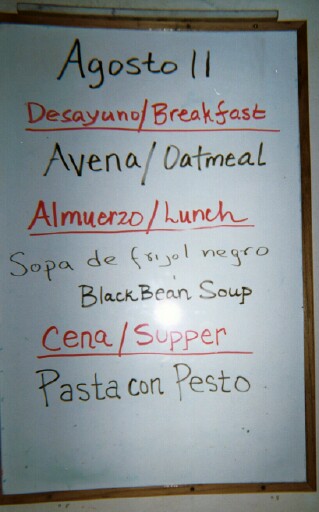 Agosto 11
Desayuno/Breakfast
Avena/Oatmeal
Almuerzo/Lunch
Sopa de frijol negro
Black Bean Soup
Cena/Supper
Pasta con Pesto